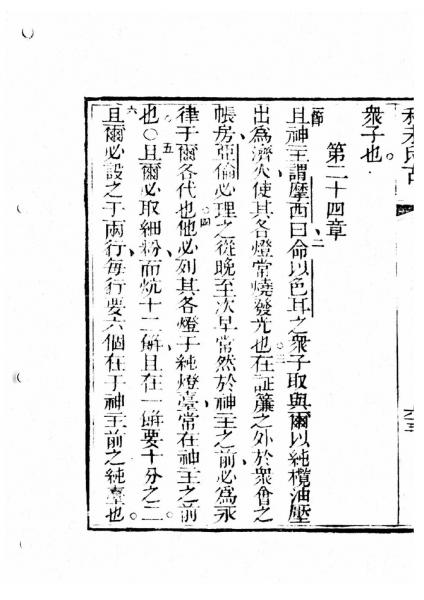 衆子也
第二十四章
且神主謂摩西曰命以色耳之衆子取與爾以純欖油壓
出爲濟火使其各燈常燒發光也在証簾之外於衆會之
帳房亞倫必理之從晚至次早常然於神主之前必爲永
律于爾各代也他必列其各燈于純燈臺常在神主之前
也○且爾必取細粉而炕十二餅且在一餅要十分之二
且爾必設之于兩行每行要六個在于神主前之純臺也